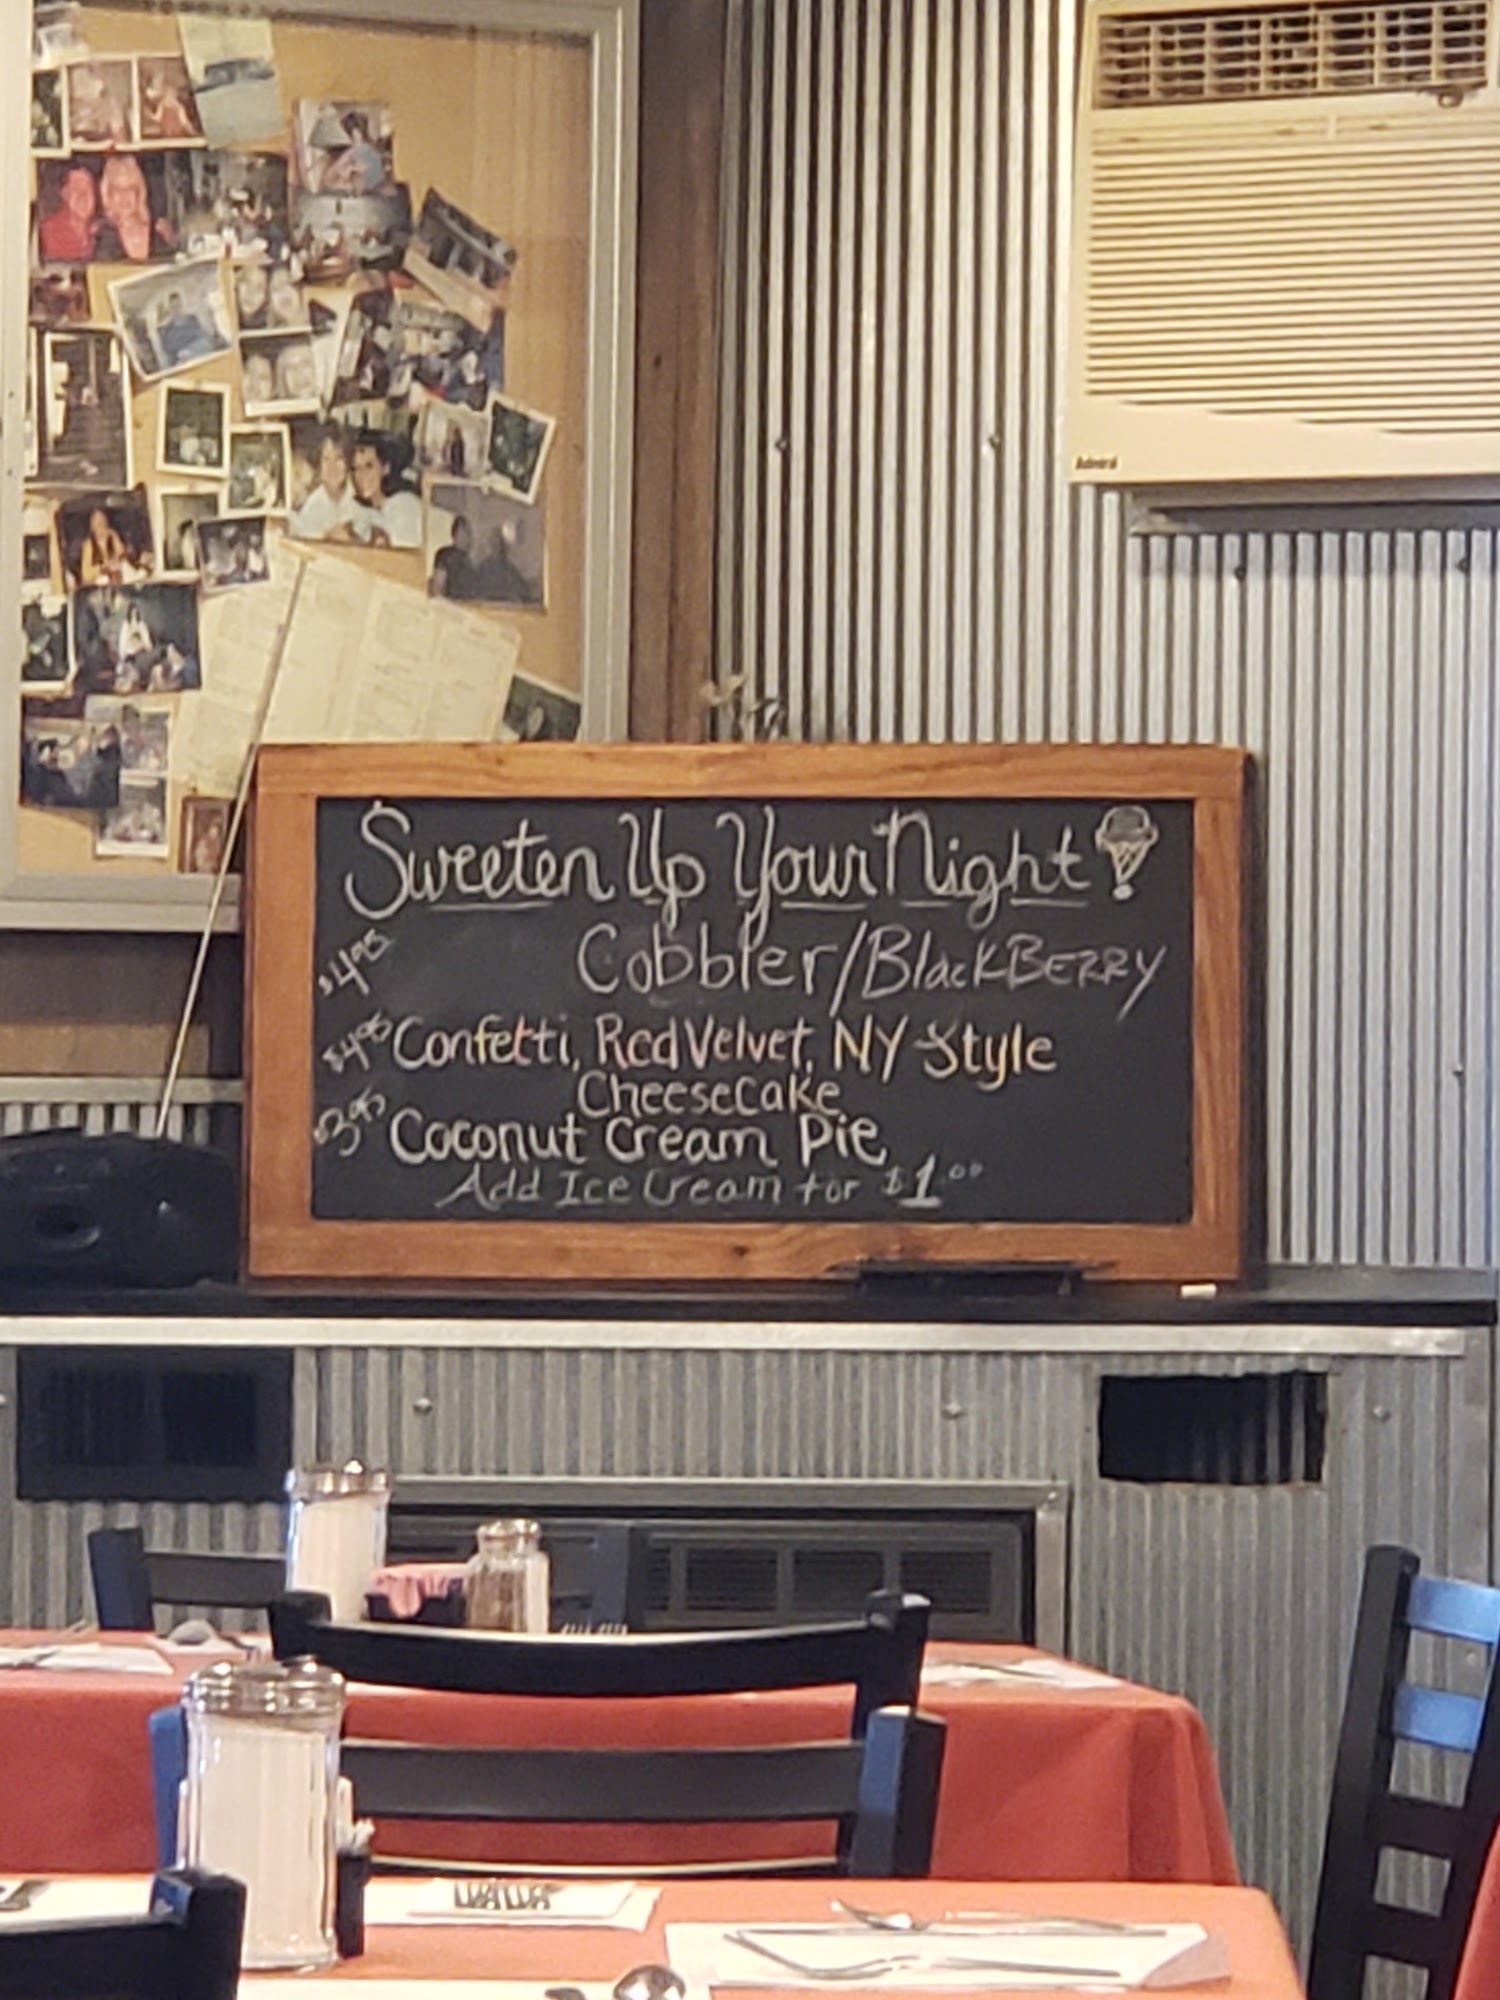 Admiral
Sweeten Up Your Night!
$4.95 Cobbler/BlackBERRY
$4.95 Confetti, Red Velvet, NY Style
Cheesecake
$3.95 Coconut Cream Pie
Add Ice Cream for $1.00